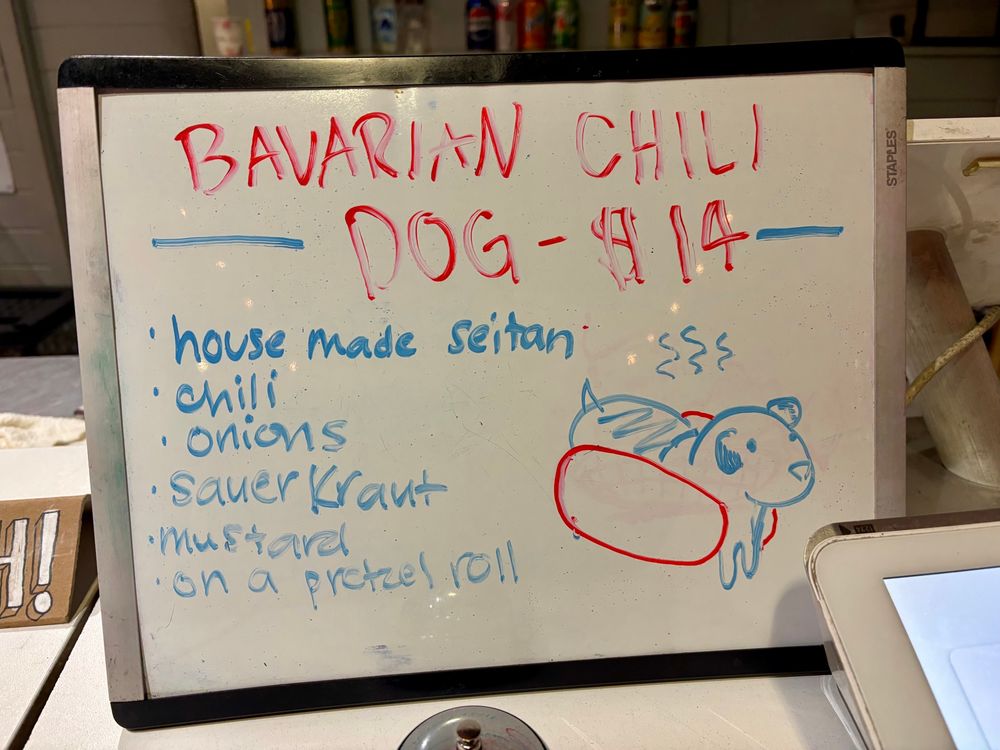 BAVARIAN CHILI
DOG - $14
· house made seitan
· chili
· onions
· sauerKraut
· mustard
· on a pretzel roll
STAPLES
H!